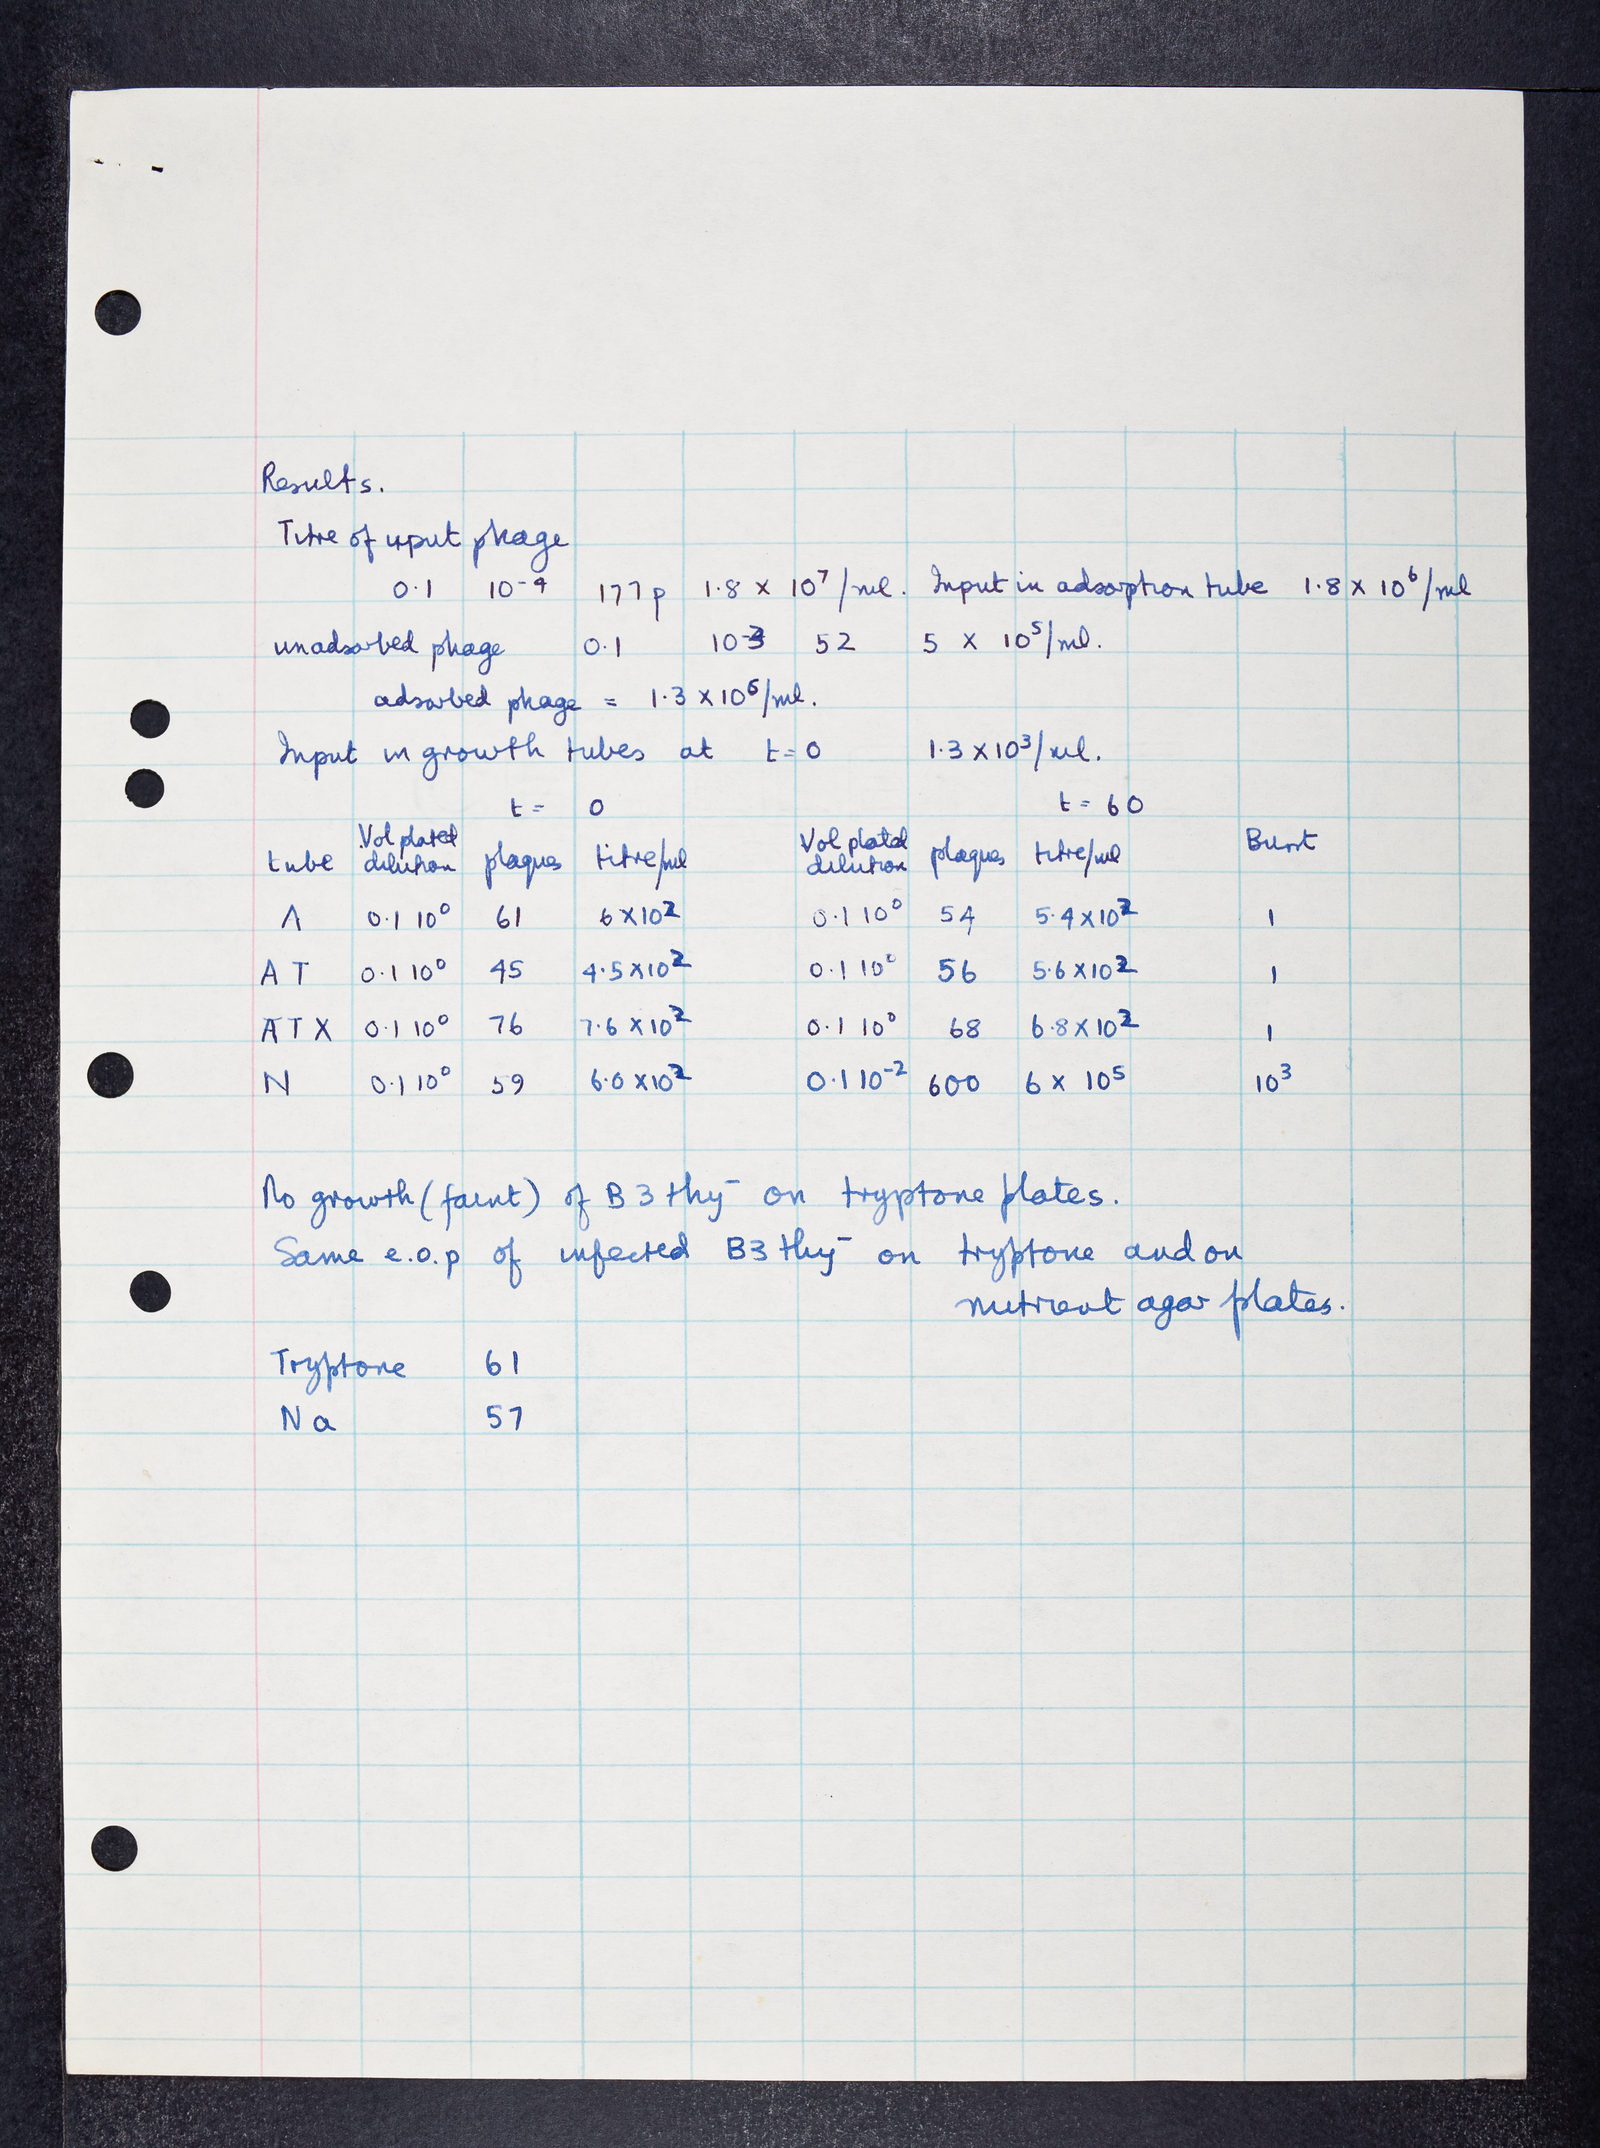 Results.
Titre of input phage
0.1 10⁻⁴ 177p 1.8 × 10⁷/ml. Input in adsorption tube 1.8 × 10⁶/ml
unadsorbed phage 0.1 10⁻³ 52 5 × 10⁵/ml.
adsorbed phage = 1.3 × 10⁶/ml.
Input in growth tubes at t=0 1.3 × 10³/ml.
t= 0 t= 60
tube Vol plated dilution plaques titre/ml Vol plated dilution plaques titre/ml Burst
A 0.1 10⁰ 61 6 × 10² 0.1 10⁰ 54 5.4 × 10² 1
AT 0.1 10⁰ 45 4.5 × 10² 0.1 10⁰ 56 5.6 × 10² 1
ATX 0.1 10⁰ 76 7.6 × 10² 0.1 10⁰ 68 6.8 × 10² 1
N 0.1 10⁰ 59 6.0 × 10² 0.1 10⁻² 600 6 × 10⁵ 10³
No growth (faint) of B3 thy⁻ on tryptone plates.
Same e.o.p of infected B3 thy⁻ on tryptone and on
nutrient agar plates.
Tryptone 61
Na 57